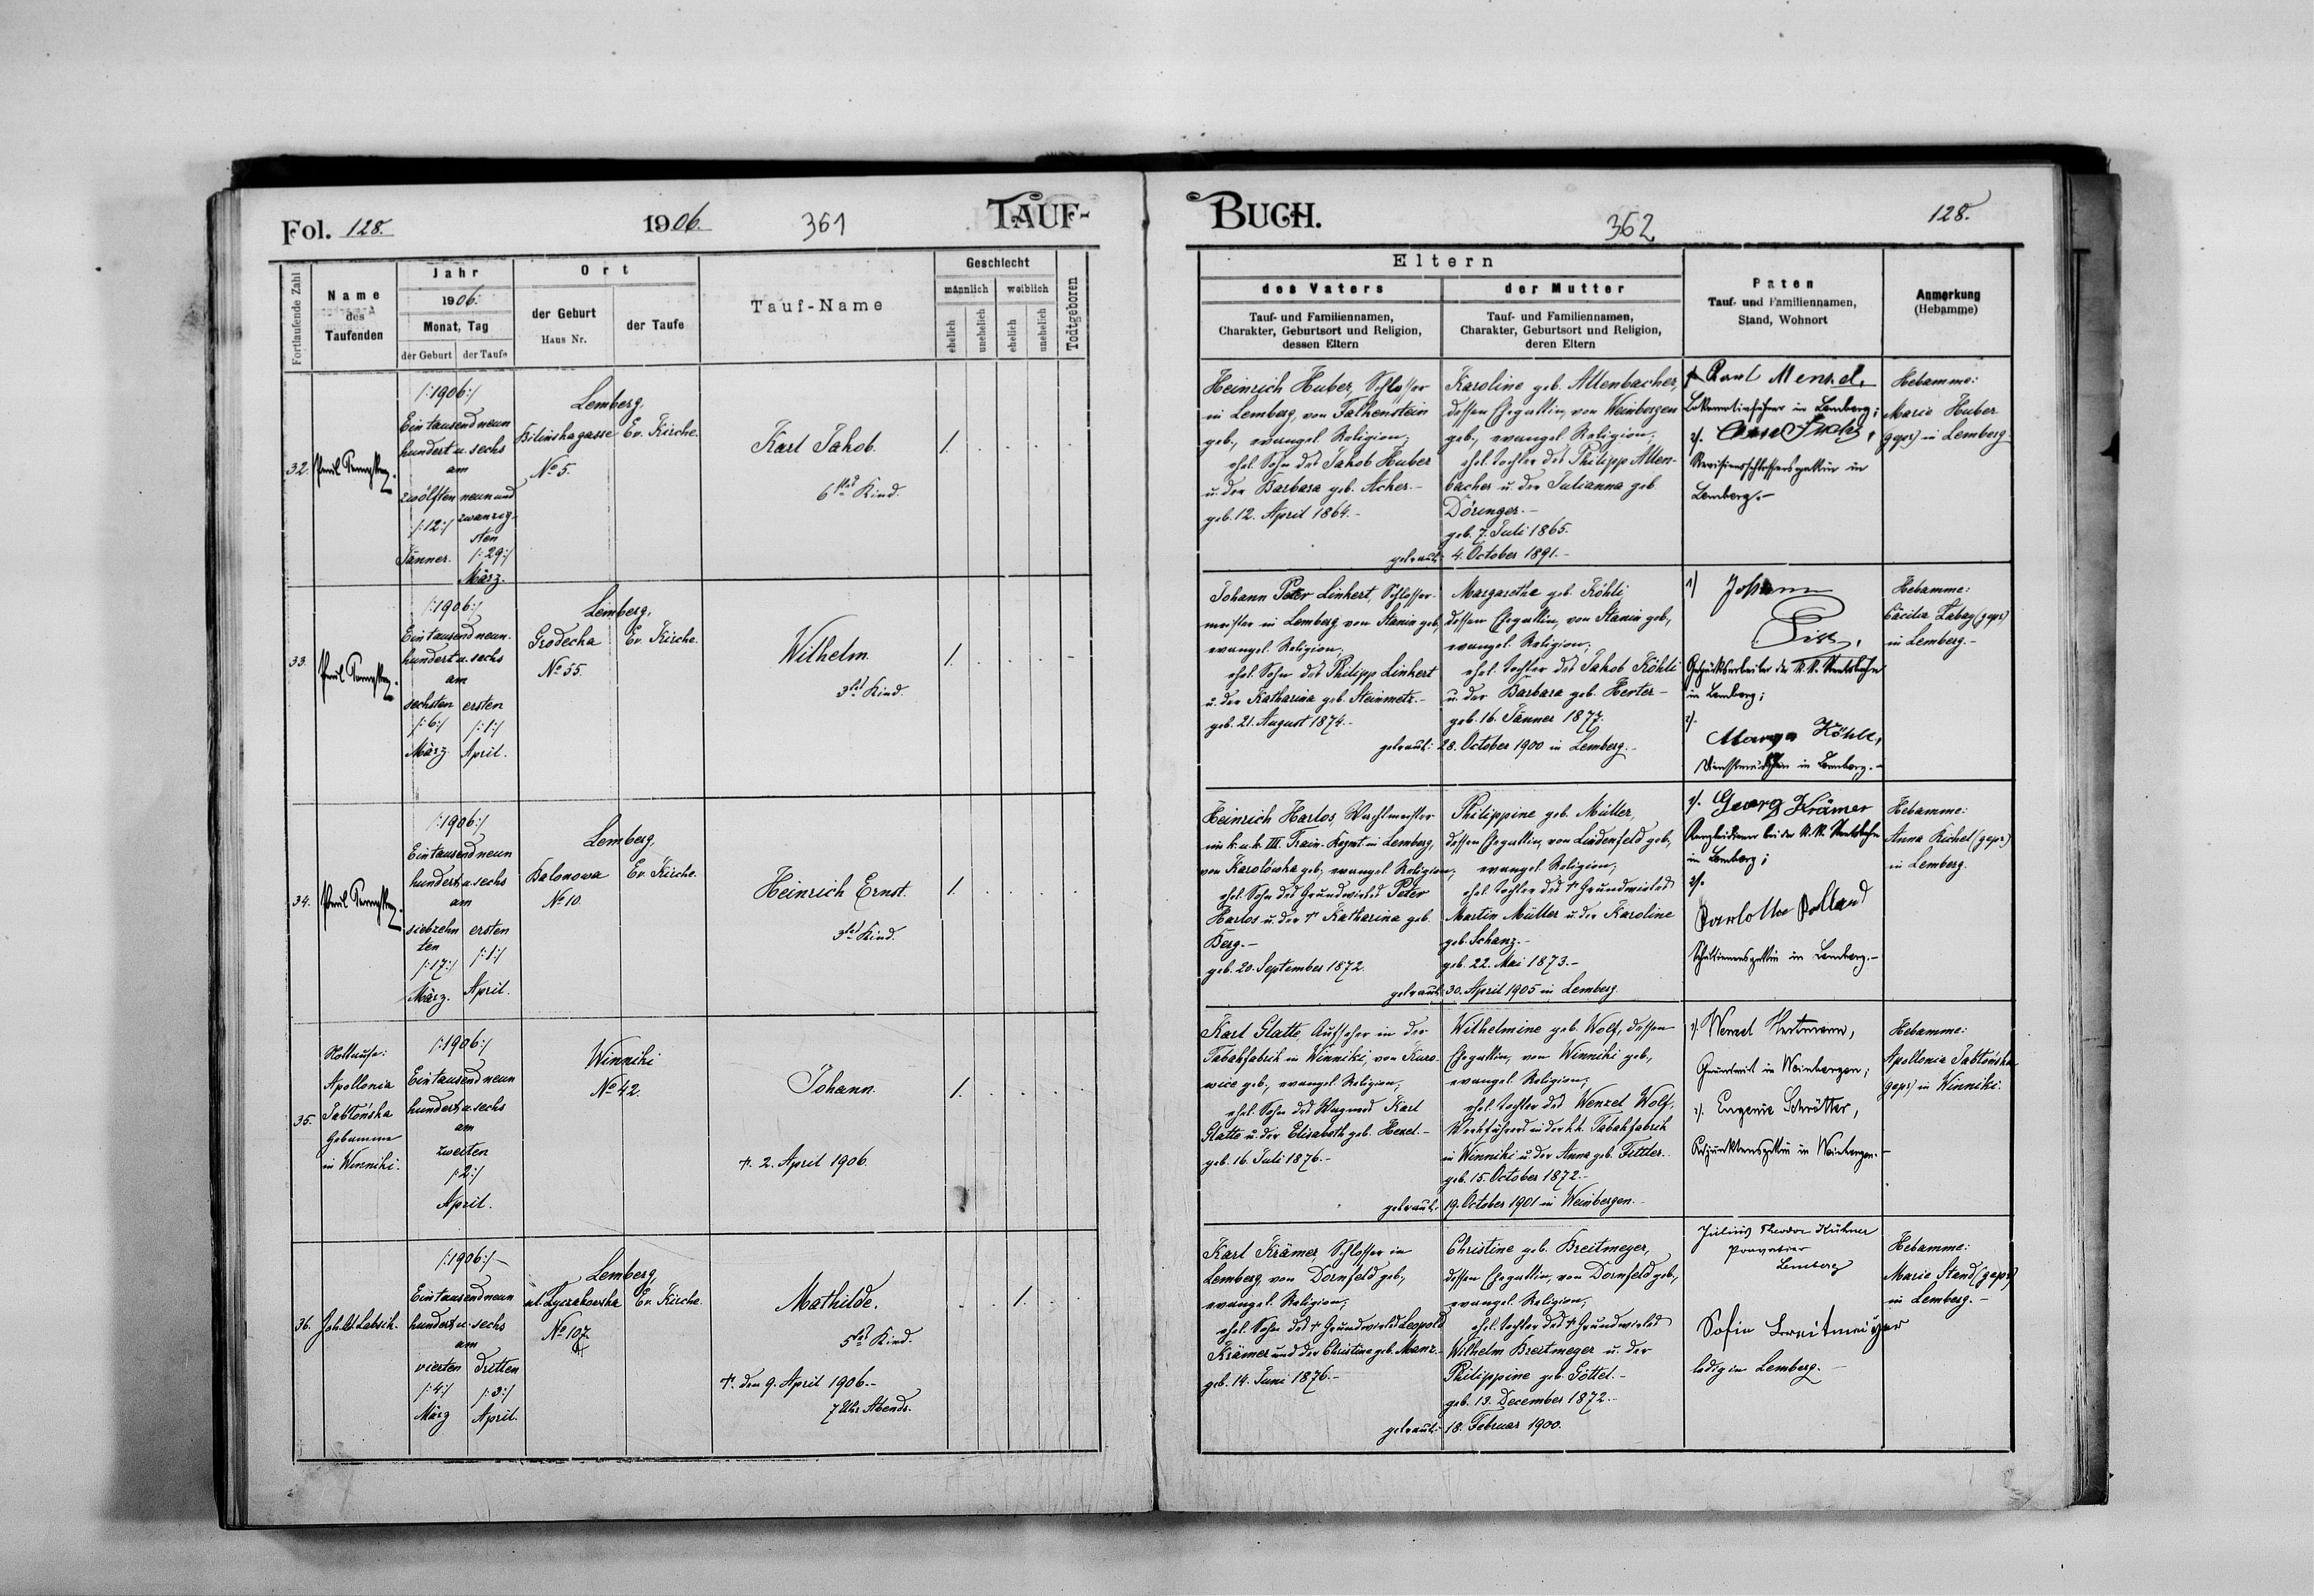 Fol. 128.
1906.
361
TAUF-
Fortlaufende Zahl
Name
des
Taufenden
Jahr
1906.
Monat, Tag
der Geburt
der Taufe
Ort
der Geburt
Haus Nr.
der Taufe
Tauf-Name
Geschlecht
männlich
weiblich
ehelich
unehelich
ehelich
unehelich
Todtgeboren
32.
/:1906:/
Ein tausend neun
hundert u. sechs
am
zwölften
/:12:/
Jänner.
neun und
zwanzig-
sten
/:29:/
März.
Lemberg,
Bilinskagasse
No 5.
Ev. Kirche.
Karl Jakob.
6tes Kind.
1.
33.
/:1906:/
Ein tausend neun-
hundert u. sechs
am
sechsten
/:6:/
März.
ersten
/:1:/
April.
Lemberg,
Grodecka
No 55.
Ev. Kirche.
Wilhelm.
3tes Kind.
1.
34.
/:1906:/
Ein tausend neun
hundert u. sechs
am
siebzehn
ten
/:17:/
März.
ersten
/:1:/
April.
Lemberg,
Balonowa
No 10.
Ev. Kirche.
Heinrich Ernst.
3tes Kind.
1.
35.
Nottaufe:
Apollonia
Jabłońska
Hebamme
in Winniki.
/:1906:/
Ein tausend neun
hundert u. sechs
am
zweiten
/:2:/
April.
Winniki
No 42.
Johann.
†. 2. April 1906.
1.
36.
/:1906:/
Ein tausend neun
hundert u. sechs
am
vierten
/:4:/
März
dritten
/:3:/
April.
Lemberg,
ul. Lyczakowska
No 107
Ev. Kirche.
Mathilde.
5tes Kind
†. den 9. April 1906.-
7 Uhr Abends.
1.
BUCH.
362
128.
Eltern
des Vaters
Tauf- und Familiennamen,
Charakter, Geburtsort und Religion,
dessen Eltern
der Mutter
Tauf- und Familiennamen,
Charakter, Geburtsort und Religion,
deren Eltern
Paten
Tauf- und Familiennamen,
Stand, Wohnort
Anmerkung
(Hebamme)
Heinrich Huber, Schlosser
in Lemberg, von Falkenstein
geb., evangel. Religion;
ehel. Sohn des Jakob Huber
u. der Barbara geb. Acker.-
geb. 12. April 1864.-
Karoline geb. Altenbacher,
dessen Ehegattin, von Weinbergen
geb., evangel. Religion;
ehel. Tochter des Philipp Alten-
bacher u. der Julianna geb.
Döringer.-
geb. 7. Juli 1865.
getraut: 4. October 1891.-
in Lemberg;
2/.
in
Lemberg.-
Hebamme:
Marie Huber
(gepr) in Lemberg
Johann Peter Linkert, Schlosser-
meister in Lemberg von Stanin geb.,
evangel. Religion;
ehel. Sohn des Philipp Linkert
u. der Katharina geb. Steinmetz.-
geb. 21. August 1874.-
Margaretha geb. Köhli,
dessen Ehegattin, von Stanin geb.,
evangel. Religion;
ehel. Tochter des Jakob Köhli
u. der Barbara geb. Herter-
geb. 16. Jänner 1877.
getraut: 28. October 1900 in Lemberg.-
1)
Johann
der k. k. Staatsbahn
in Lemberg;
2).
Dienstmädchen in Lemberg.-
Hebamme:
in Lemberg.-
Heinrich Harlos, Wachtmeister
im k. u. k. III. Train-Regmt. in Lemberg,
von Karolówka geb., evangel. Religion;
ehel. Sohn des Grundwirtes Peter
Harlos u. der † Katharina geb.
Berg.-
geb. 20. September 1872.
Philippine geb. Müller,
dessen Ehegattin, von Lindenfeld geb.,
evangel. Religion;
ehel. Tochter des † Grundwirtes
Martin Müller u. der Karoline
geb. Schanz.-
geb. 22. Mai 1873.-
getraut: 30. April 1905 in Lemberg.
1/. Georg Krämer
Kanzleidiener bei der k. k. Staatsbahn
in Lemberg;
2/.
in Lemberg.-
Hebamme:
Anna Kichel (gepr)
in Lemberg.
Karl Glatte, Aufseher in der
Tabakfabrik in Winniki, von Kuro-
wice geb., evangel. Religion;
ehel. Sohn des Wagners Karl
Glatte u. der Elisabeth geb. Hexel.-
geb. 16. Juli 1876.-
Wilhelmine geb. Wolf, dessen
Ehegattin, von Winniki geb.,
evangel. Religion;
ehel. Tochter des Wenzel Wolf,
Werkführers in der k.k. Tabakfabrik
in Winniki u. der Anna geb. Fittler.-
geb. 15. October 1872.-
getraut: 19. October 1901 in Weinbergen.-
1/.
Grundwirt in Weinbergen;
2/. Eugenie Schrötter,
in Weinbergen.-
Hebamme:
Apollonia Jabłońska
(gepr) in Winniki.
Karl Krämer, Schlosser in
Lemberg, von Dornfeld geb.,
evangel. Religion;
ehel. Sohn des † Grundwirtes Leopold
Krämer und der Christine geb. Manz.-
geb. 14. Juni 1876.-
Christine geb. Breitmeyer,
dessen Ehegattin, von Dornfeld geb.,
evangel. Religion;
ehel. Tochter des † Grundwirtes
Wilhelm Breitmeyer u. der
Philippine geb. Göttel.-
geb. 13. December 1872.-
getraut: 18. Februar 1900.
Julius Theodor Kühner
Lemberg
Sofie Breitmeiyer
ledig in Lemberg.-
Hebamme:
Marie Stand (gepr)
in Lemberg.-